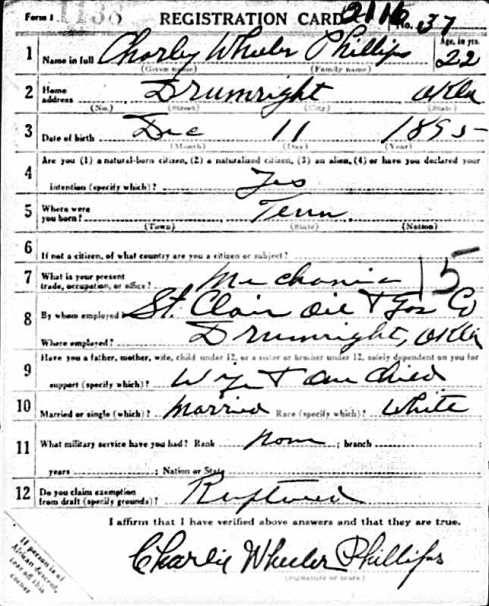 Form 1 1138 REGISTRATION CARD 2116 No. 37
1 Name in full Charley Wheeler Phillips Age, in yrs. 22
(Given name) (Family name)
2 Home address Drumright Okla
(No.) (Street) (City) (State)
3 Date of birth Dec 11 1895
(Month) (Day) (Year)
Are you (1) a natural-born citizen, (2) a naturalized citizen, (3) an alien, (4) or have you declared your
4 intention (specify which)? Yes
5 Where were you born? Tenn
(Town) (State) (Nation)
6 If not a citizen, of what country are you a citizen or subject?
7 What is your present trade, occupation, or office? Mechanic 15
8 By whom employed St. Clair Oil & Gas Co
Where employed? Drumright, Okla
Have you a father, mother, wife, child under 12, or a sister or brother under 12, solely dependent on you for
9 support (specify which)? Wife & one child
10 Married or single (which)? Married Race (specify which)? White
11 What military service have you had? Rank None ; branch ;
years ; Nation or State
12 Do you claim exemption from draft (specify grounds)? Ruptured
I affirm that I have verified above answers and that they are true.
Charlie Wheeler Phillips
(Signature or mark)
If person is of
African descent,
tear off this
corner